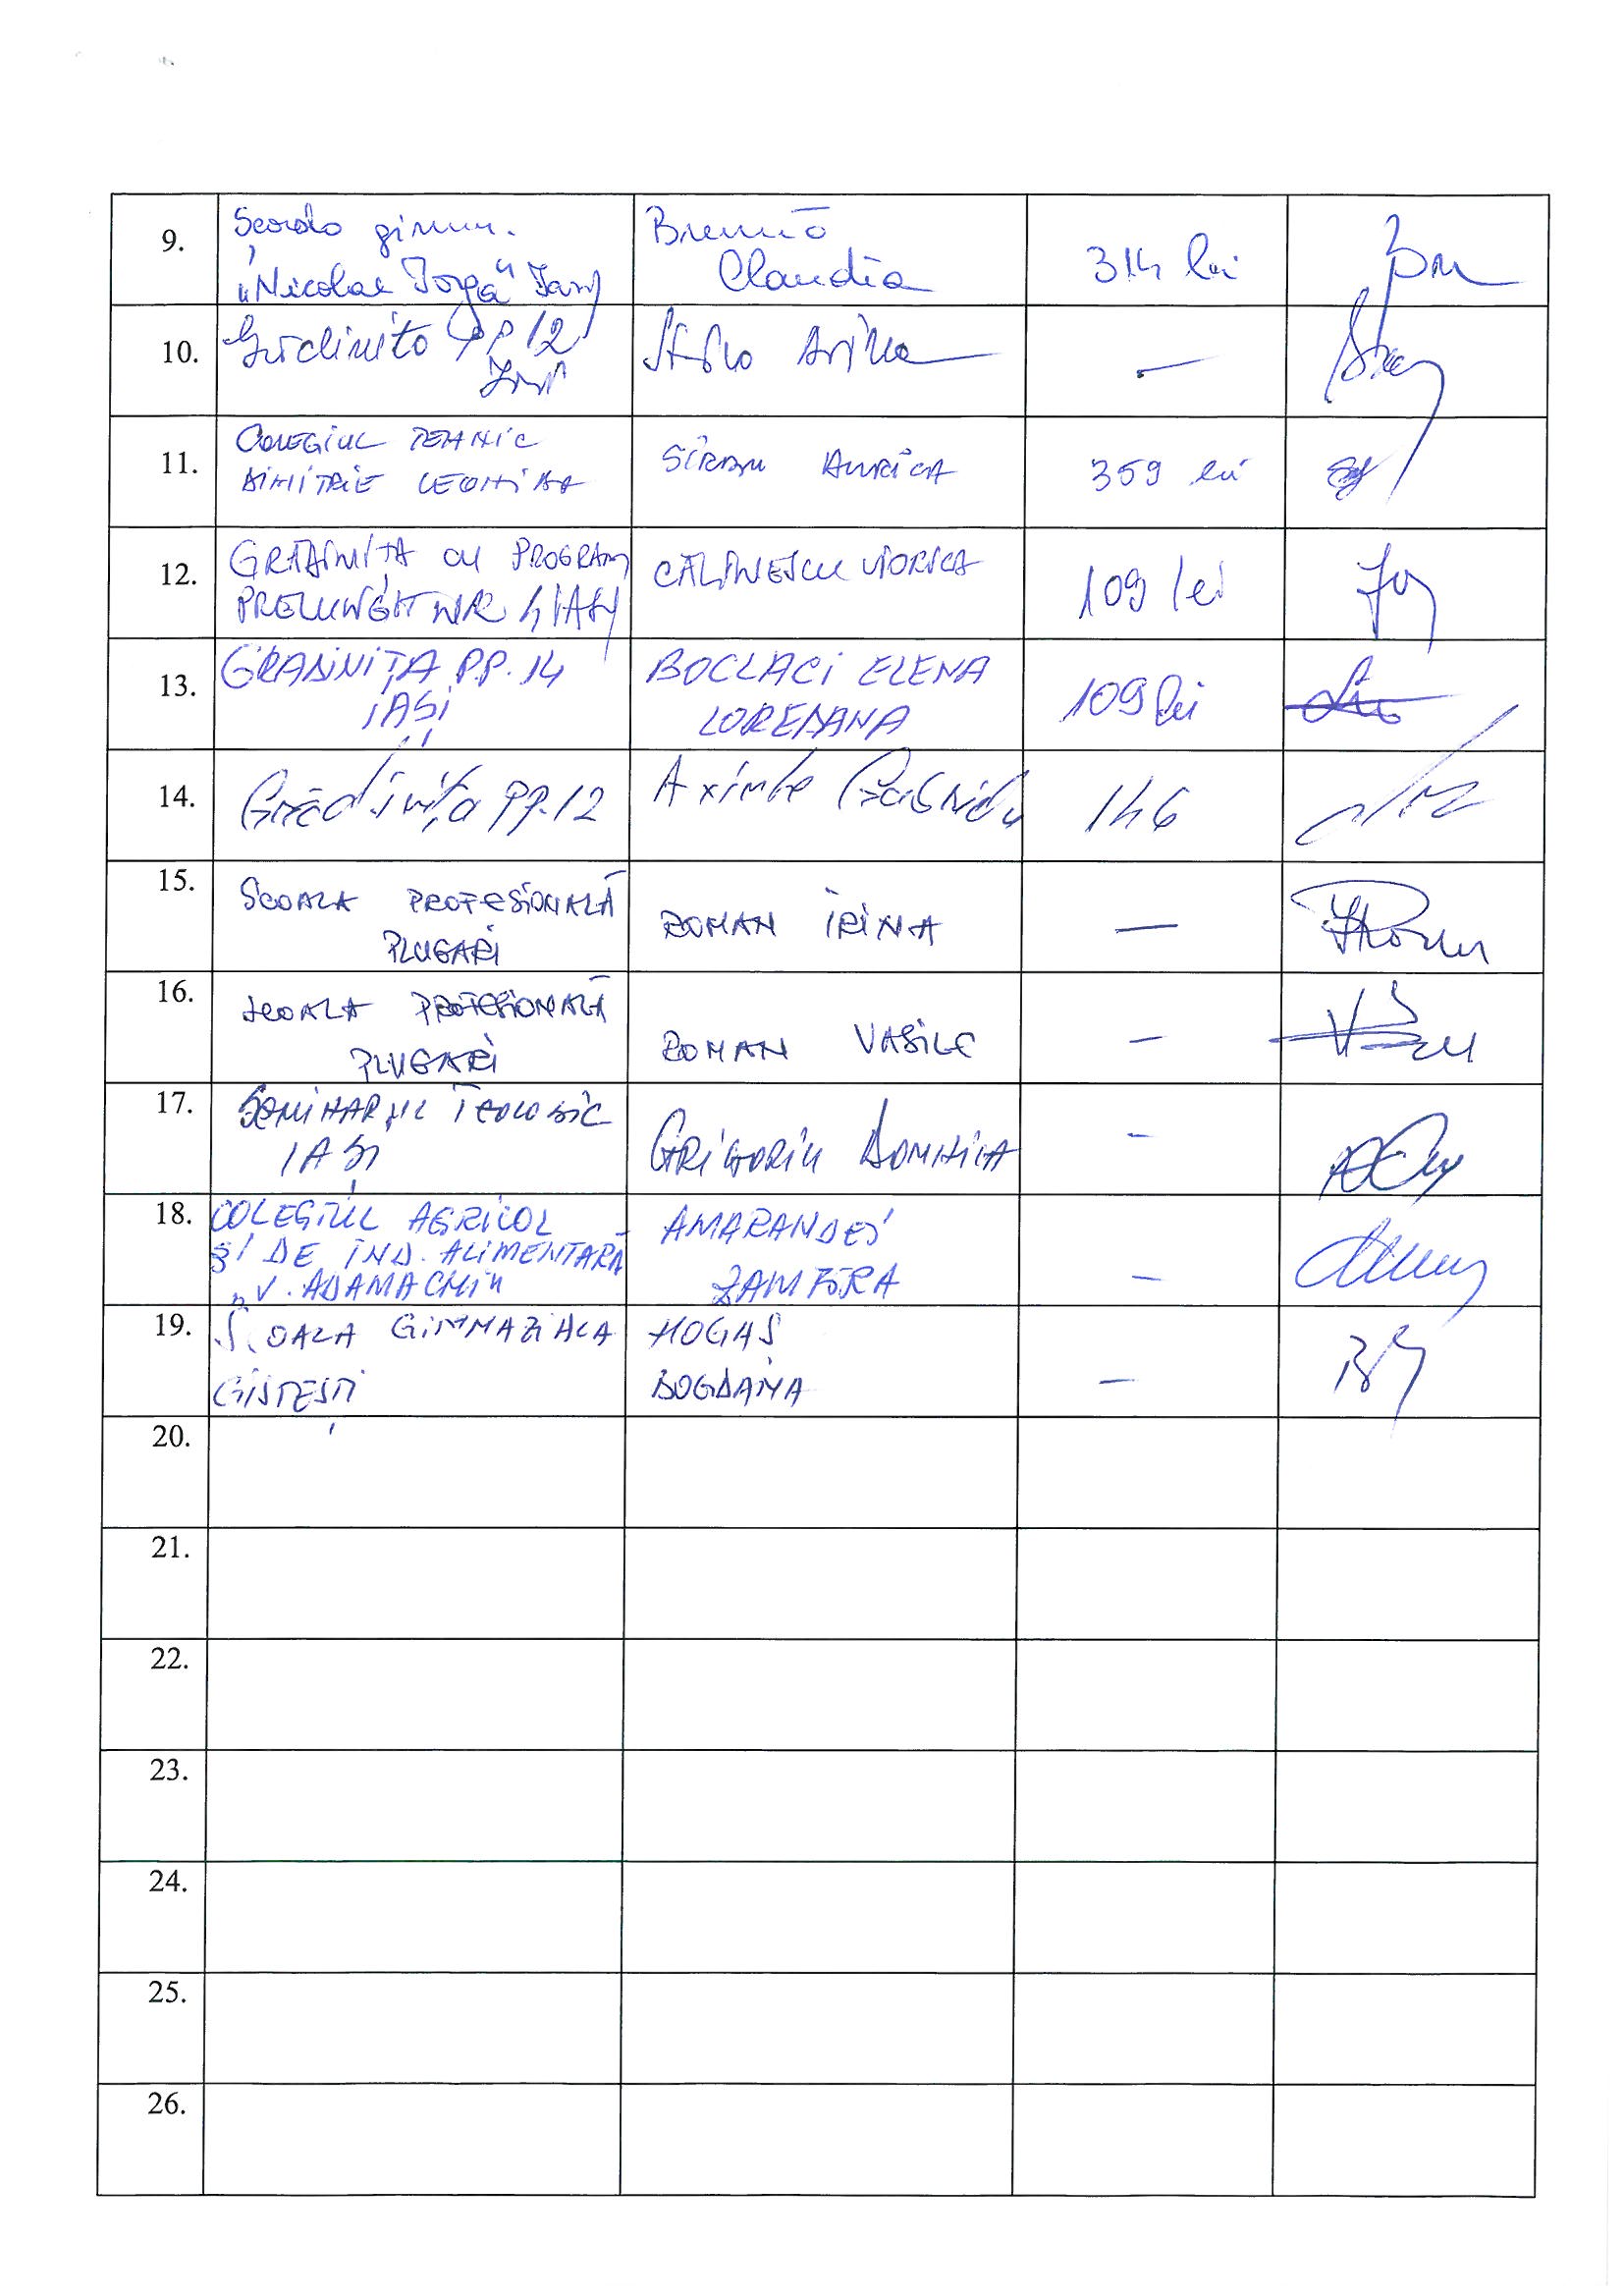 9.
Școala gimn.
„Nicolae Iorga" Iași
Claudia
314 lei
10.
Grădinița PP 12
Iași
—
11.
COLEGIUL TEHNIC
DIMITRIE LEONIDA
SÎRBU AURICA
359 lei
12.
GRĂDINIȚA CU PROGRAM
PRELUNGIT NR 4 IAȘI
CĂLINESCU VIORICA
109 lei
13.
GRĂDINIȚA P.P. 14
IAȘI
BOCLACI ELENA
LOREDANA
109 lei
14.
Grădinița PP. 12
Axinte
146
15.
ȘCOALA PROFESIONALĂ
PLUGARI
ROMAN IRINA
—
16.
ȘCOALA PROFESIONALĂ
PLUGARI
ROMAN VASILE
—
17.
SEMINARUL TEOLOGIC
IAȘI
GRIGORIU DOMNICA
-
18.
COLEGIUL AGRICOL
ȘI DE IND. ALIMENTARĂ
„V. ADAMACHI"
AMARANDEI
ZAMFIRA
—
19.
ȘCOALA GIMNAZIALA
HOGAȘ
BOGDANA
—
20.
21.
22.
23.
24.
25.
26.